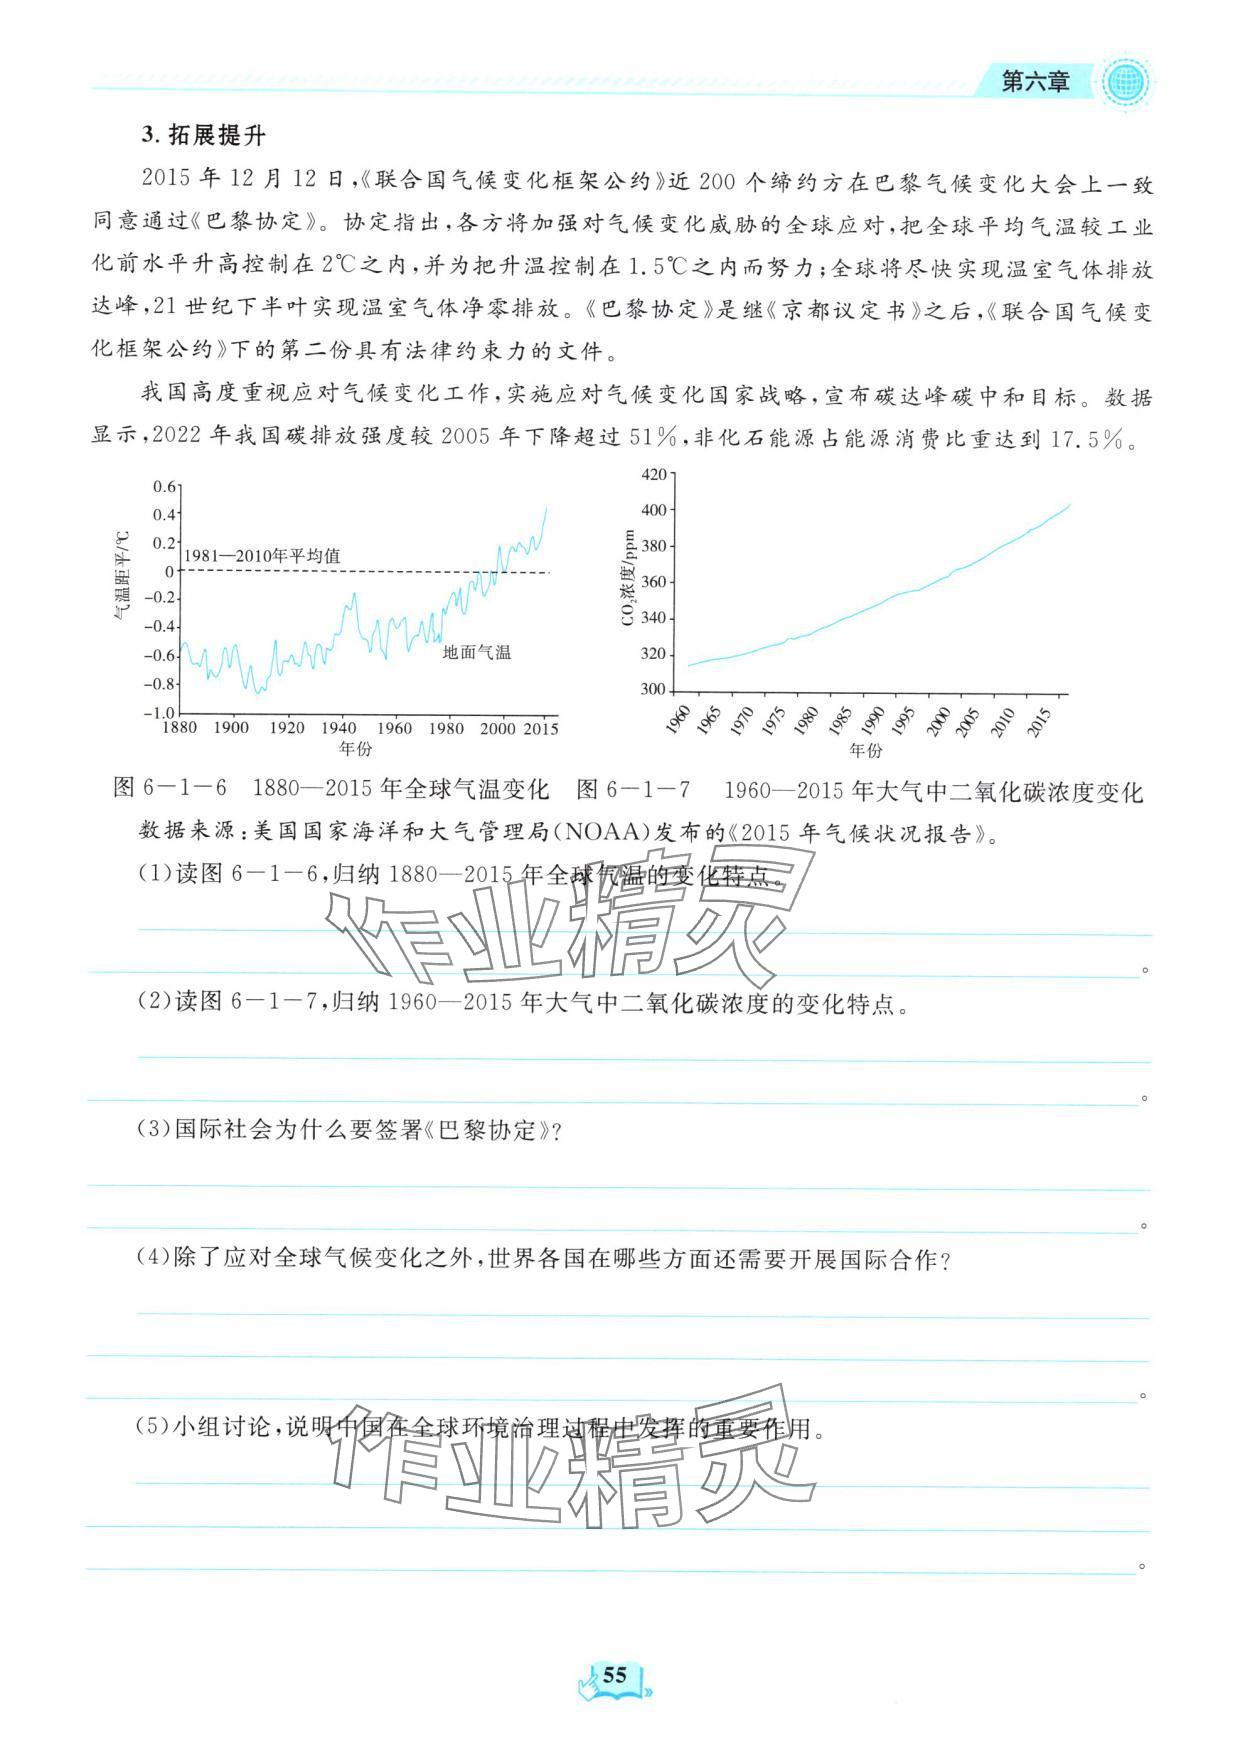 第六章
3. 拓展提升
2015 年 12 月 12 日,《联合国气候变化框架公约》近 200 个缔约方在巴黎气候变化大会上一致
同意通过《巴黎协定》。协定指出,各方将加强对气候变化威胁的全球应对,把全球平均气温较工业
化前水平升高控制在 2℃之内,并为把升温控制在 1.5℃之内而努力;全球将尽快实现温室气体排放
达峰,21 世纪下半叶实现温室气体净零排放。《巴黎协定》是继《京都议定书》之后,《联合国气候变
化框架公约》下的第二份具有法律约束力的文件。
我国高度重视应对气候变化工作,实施应对气候变化国家战略,宣布碳达峰碳中和目标。数据
显示,2022 年我国碳排放强度较 2005 年下降超过 51%,非化石能源占能源消费比重达到 17.5%。
气温距平/℃
0.6
0.4
0.2
0
-0.2
-0.4
-0.6
-0.8
-1.0
1981—2010年平均值
地面气温
1880 1900 1920 1940 1960 1980 2000 2015
年份
CO₂浓度/ppm
420
400
380
360
340
320
300
1960 1965 1970 1975 1980 1985 1990 1995 2000 2005 2010 2015
年份
图 6-1-6 1880—2015 年全球气温变化 图 6-1-7 1960—2015 年大气中二氧化碳浓度变化
数据来源:美国国家海洋和大气管理局(NOAA)发布的《2015 年气候状况报告》。
(1)读图 6-1-6,归纳 1880—2015 年全球气温的变化特点。
作业精灵
。
(2)读图 6-1-7,归纳 1960—2015 年大气中二氧化碳浓度的变化特点。
。
(3)国际社会为什么要签署《巴黎协定》?
。
(4)除了应对全球气候变化之外,世界各国在哪些方面还需要开展国际合作?
。
(5)小组讨论,说明中国在全球环境治理过程中发挥的重要作用。
作业精灵
。
55